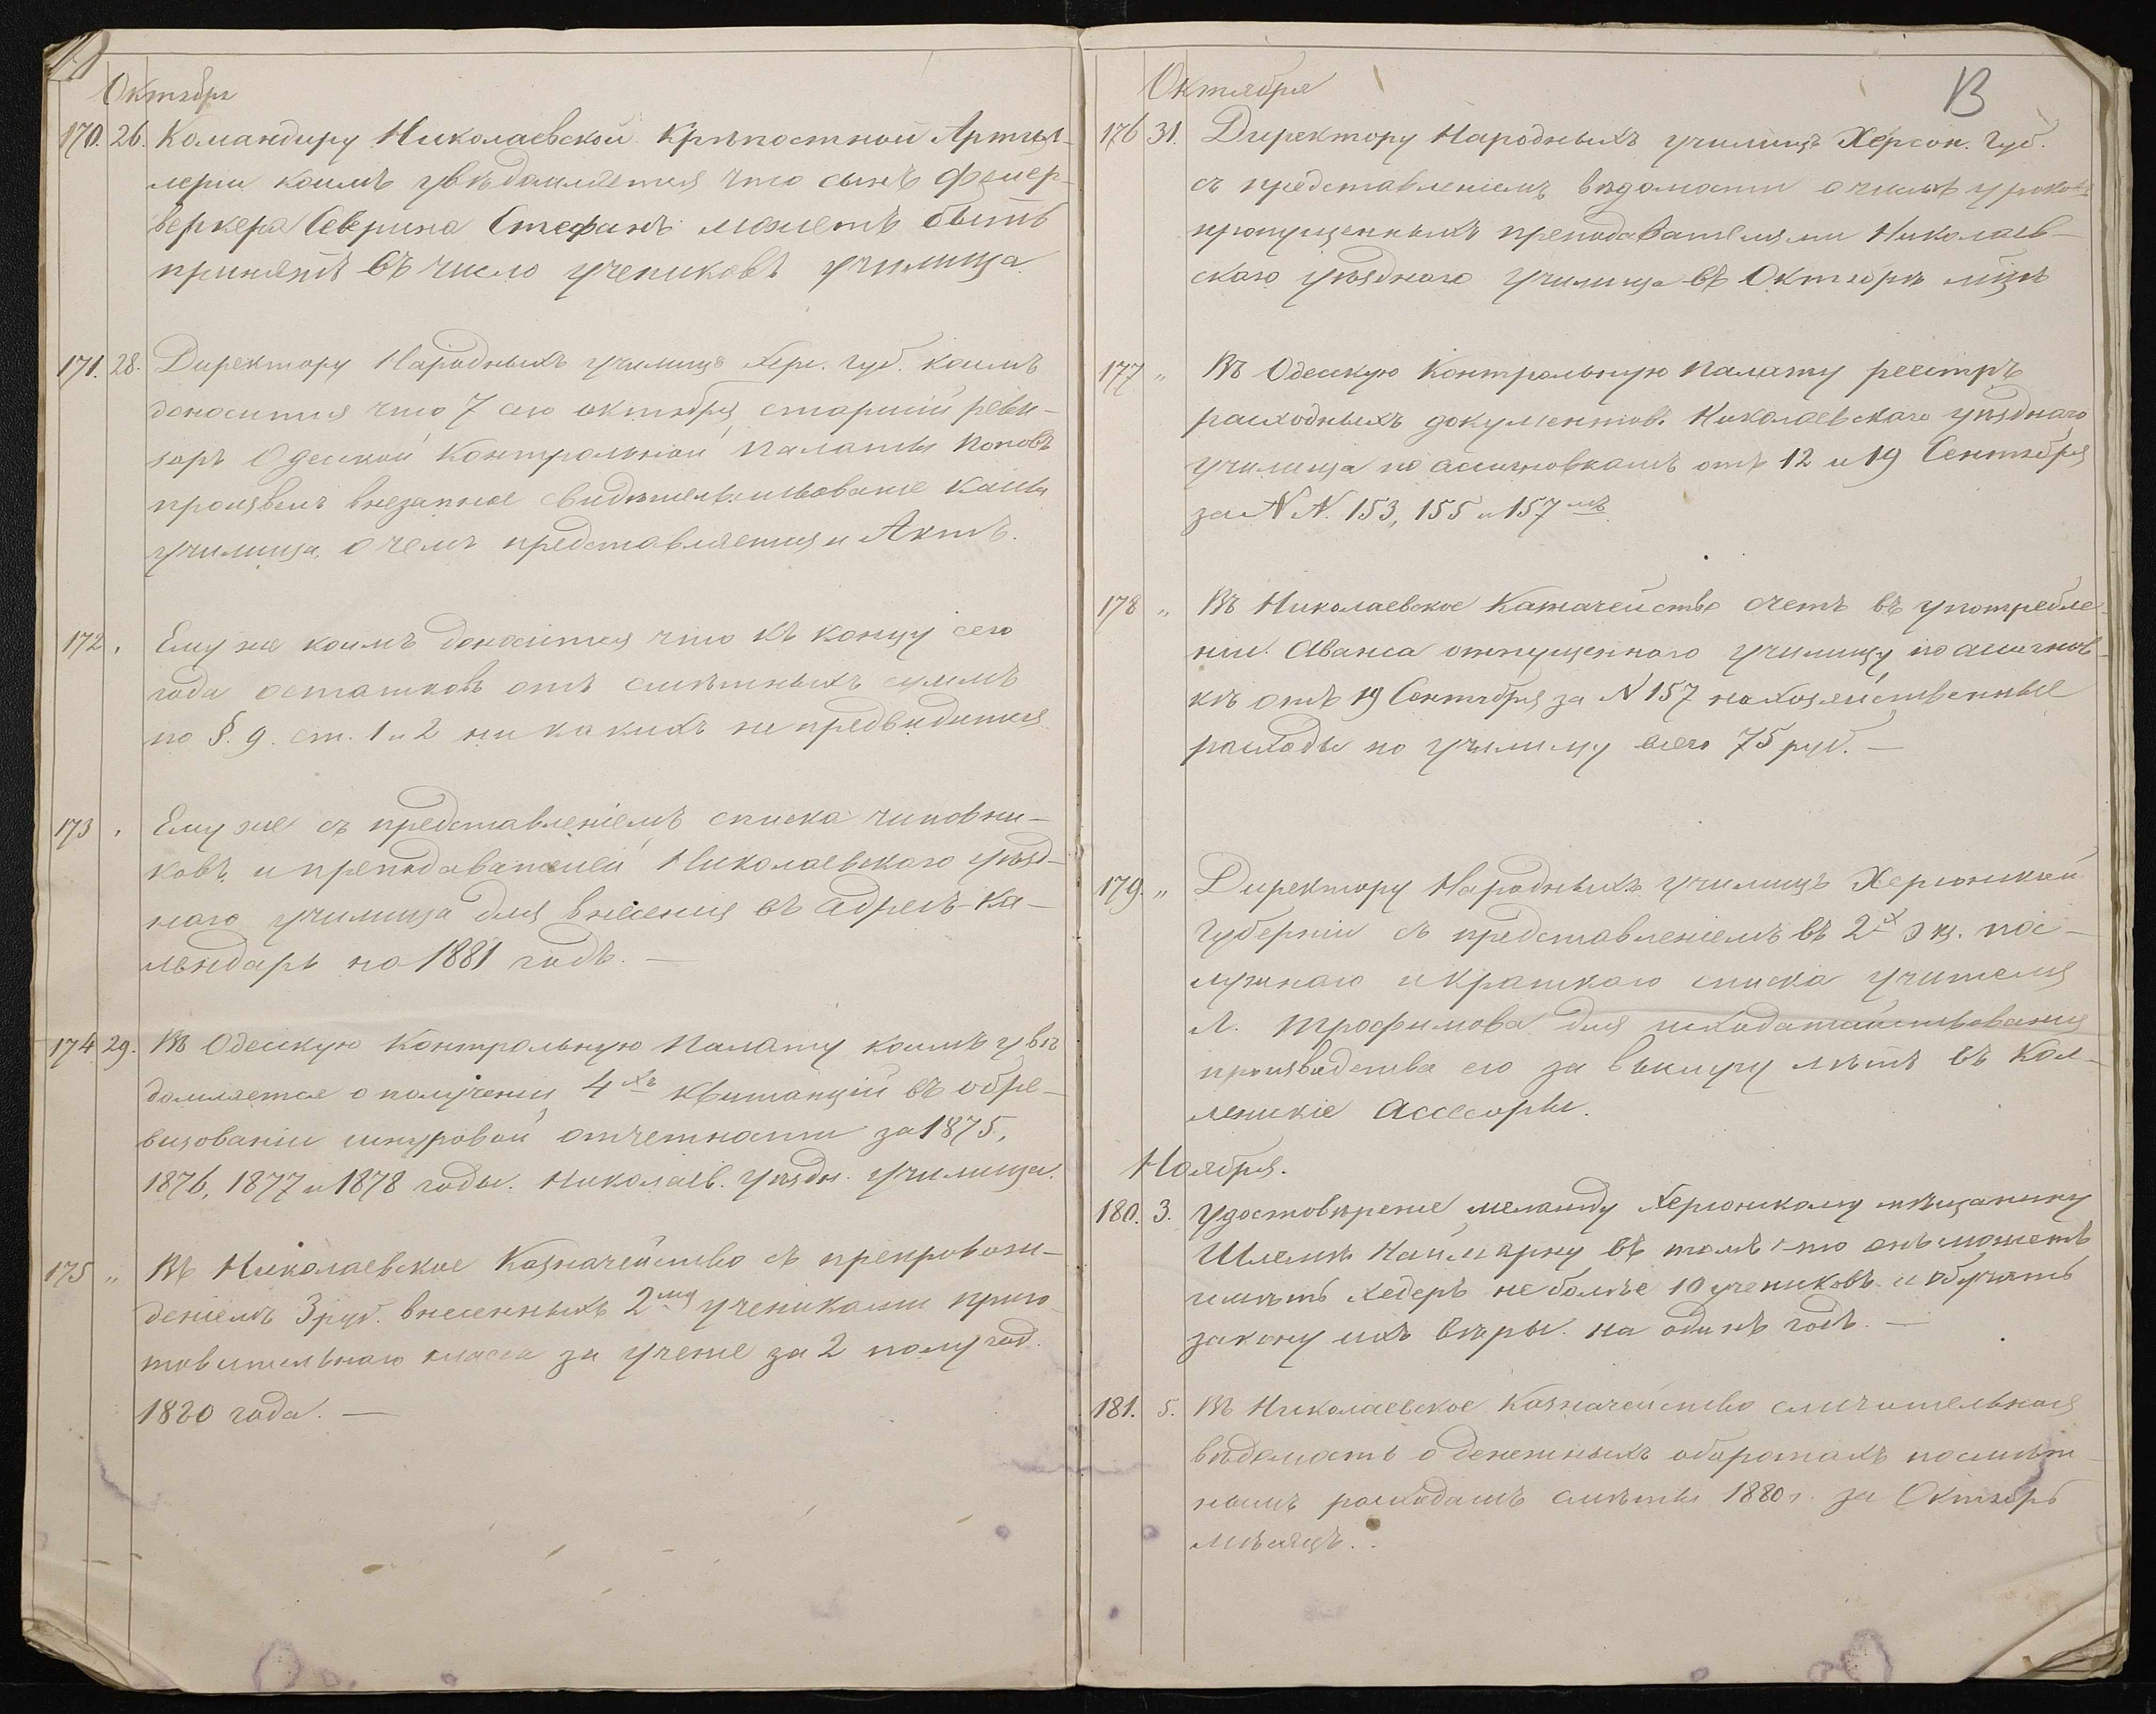 Октябрь
170. 26. Командиру Николаевской Крѣпостной Артил-
леріи коимъ увѣдомляется что сынъ фейер-
веркера Северина Стефанъ можетъ быть
принятъ въ число учениковъ училища
171. 28. Директору Народныхъ училищъ Хер. губ. коимъ
доносится что 7 сего октября, старшій реви-
зоръ Одесской Контрольной Палаты Поповъ
произвелъ внезапное свидѣтельствованіе кассы
училища, о чемъ представляется и Актъ.
172 „ Ему же коимъ доносится что къ концу сего
года остатковъ отъ смѣтныхъ суммъ
по §. 9. ст. 1 и 2 ни какихъ не предвидится
173 „ Ему же съ представленіемъ списка чиновни-
ковъ и преподавателей Николаевскаго уѣзд-
наго училища для внесенія въ Адресъ-Ка-
лендарь на 1881 годъ. —
174 29. Въ Одесскую Контрольную Палату коимъ увѣ
домляется о полученіи 4хъ квитанцій въ обре-
визованіи шнуровой отчетности за 1875,
1876, 1877 и 1878 годы. Николаев. Уѣздн. Училища.
175 „ Въ Николаевское Казначейство съ препровож-
деніемъ 3 руб. внесенныхъ 2мя учениками приго
товительнаго класса за ученіе за 2 полугод.
1880 года. —
13
Октября
176 31. Директору Народныхъ училищъ Херсон. Губ.
съ представленіемъ вѣдомости о числѣ уроковъ
пропущенныхъ преподавателями Николаев-
скаго уѣзднаго училища въ Октябрѣ мцѣ
177 „ Въ Одесскую Контрольную Палату реестръ
расходныхъ документов. Николаевскаго уѣзднаго
училища по ассигновкамъ отъ 12 и 19 Сентября
за N N. 153, 155 и 157мъ
178 „ Въ Николаевское Казначейство счетъ въ употребле-
ніи. Аванса отпущеннаго училищу по ассигнов-
кѣ отъ 19 Сентября за N 157 на хозяйственные
расходы по училищу всего 75 руб. —
179. „ Директору Народныхъ училищъ Херсонской
Губерніи съ представленіемъ въ 2х экз. пос-
лужнаго и краткаго списка учителя
Л. Трофимова для исходатайствованія
производства его за выслугу лѣтъ въ Кол-
лежскіе Ассесоры.
Ноября.
180. 3. Удостовѣреніе меламду Херсонскому мѣщанину
Шлемѣ Наймарку въ томъ что онъ можетъ
имѣть хедеръ не болѣе 10 учениковъ и обучать
закону ихъ вѣры. на одинъ годъ. —
181. 5. Въ Николаевское Казначейство сличительная
вѣдомость о денежныхъ оборотахъ по смѣт-
нымъ расходамъ смѣты 1880 г. за Октябрь
мѣсяцъ.